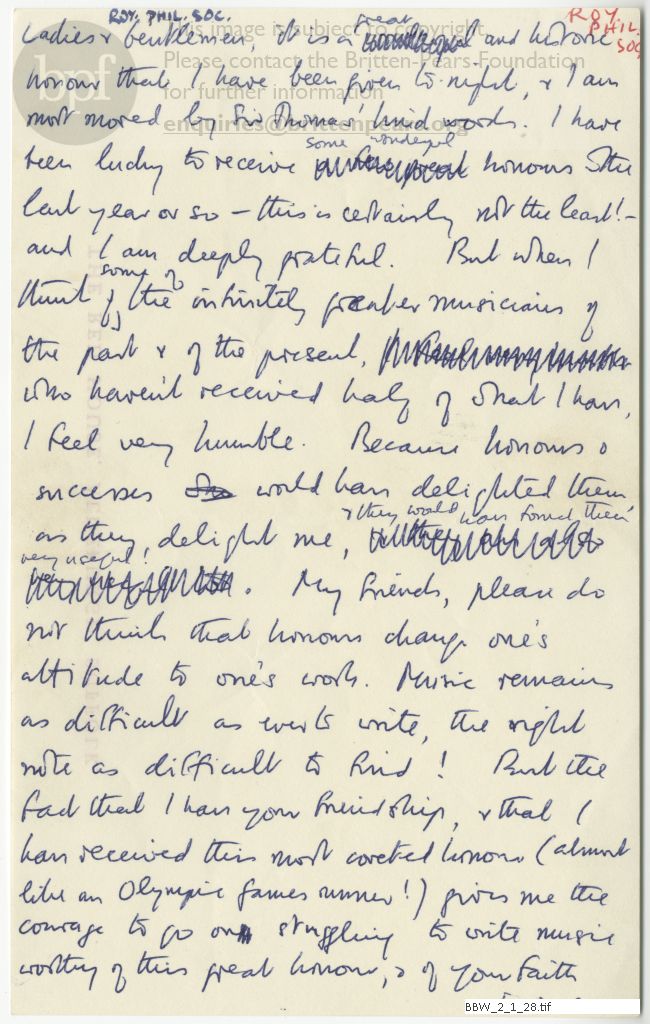 ROY. PHIL. SOC.
ROY.
PHIL.
SOC
This image is subject to copyright.
Please contact the Britten-Pears Foundation
for further information
enquiries@brittenpears.org
bpf
great
Ladies & Gentlemen, it is a and historic
honour that I have been given to-night, & I am
most moved by Sir Thomas' kind words. I have
some wonderful
been lucky to receive honours in the
last year or so — this is certainly not the least! –
and I am deeply grateful. But when I
some of
think of the infinitely greater musicians of
the past & of the present,
who haven't received half of what I have,
I feel very humble. Because honours &
successes would have delighted them
& they would have found them
as they delight me,
very useful!
. My friends, please do
not think that honours change one's
attitude to one's work. Music remains
as difficult as ever to write, the right
note as difficult to find! But the
fact that I have your friendship, & that I
have received this most coveted honour (almost
like an Olympic Games runner!) gives me the
courage to go on struggling to write music
worthy of this great honour, & of your faith
BBW_2_1_28.tif